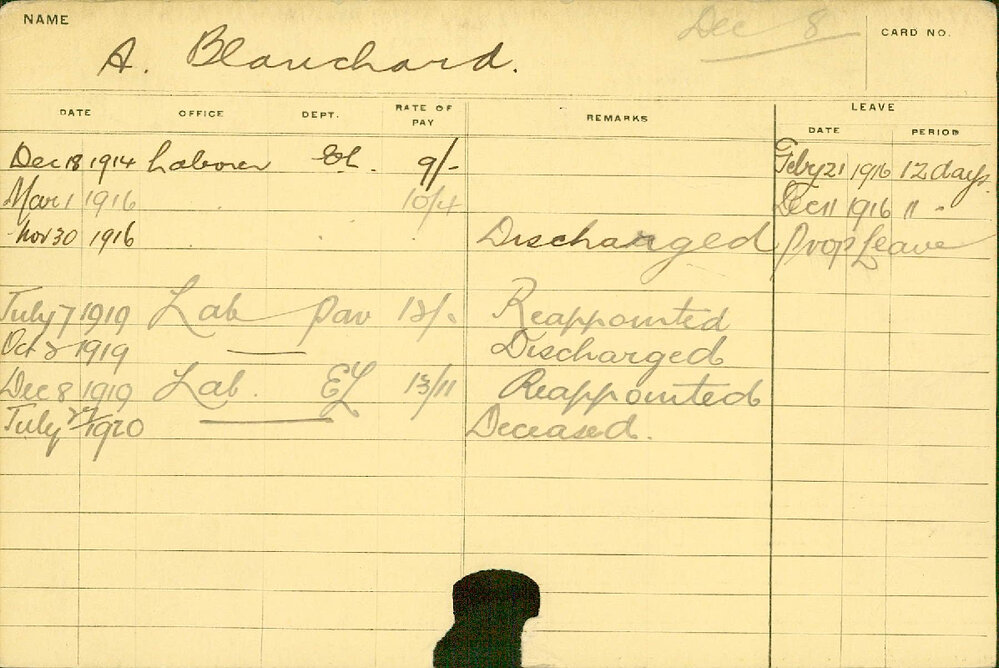 NAME
Dec 8
CARD NO.
A. Blanchard.
DATE OFFICE DEPT. RATE OF PAY REMARKS LEAVE
DATE PERIOD
Dec 18 1914 Laborer 9/- Feby 21 1916 12 days
Mar 1 1916 10/4 Dec 11 1916 11 "
Nov 30 1916 Discharged Prop Leave
July 7 1919 Lab Pav 12/- Reappointed
Oct 2 1919 Discharged
Dec 8 1919 Lab. EL 13/11 Reappointed
July 1920 Deceased.